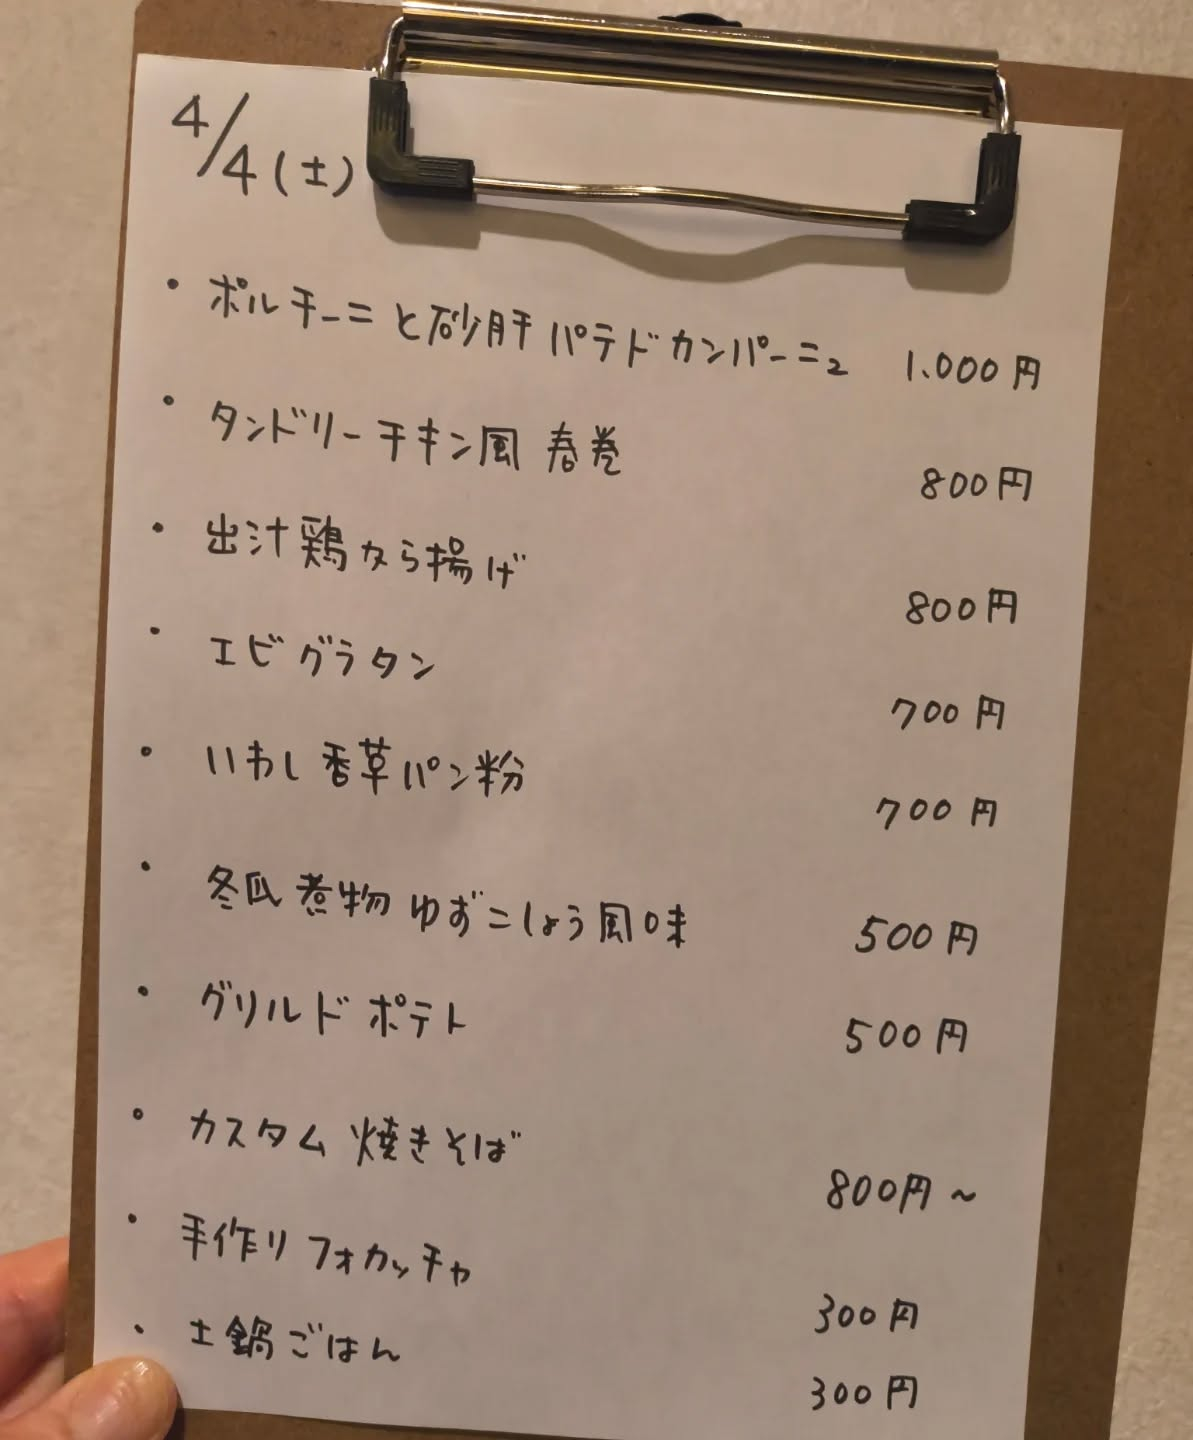 4/4(土)
・ポルチーニと砂肝 パテドカンパーニュ 1.000円
・タンドリーチキン風 春巻 800円
・出汁鶏から揚げ 800円
・エビグラタン 700円
・いわし香草パン粉 700円
・冬瓜煮物 ゆずこしょう風味 500円
・グリルドポテト 500円
・カスタム焼きそば 800円~
・手作りフォカッチャ 300円
・土鍋ごはん 300円